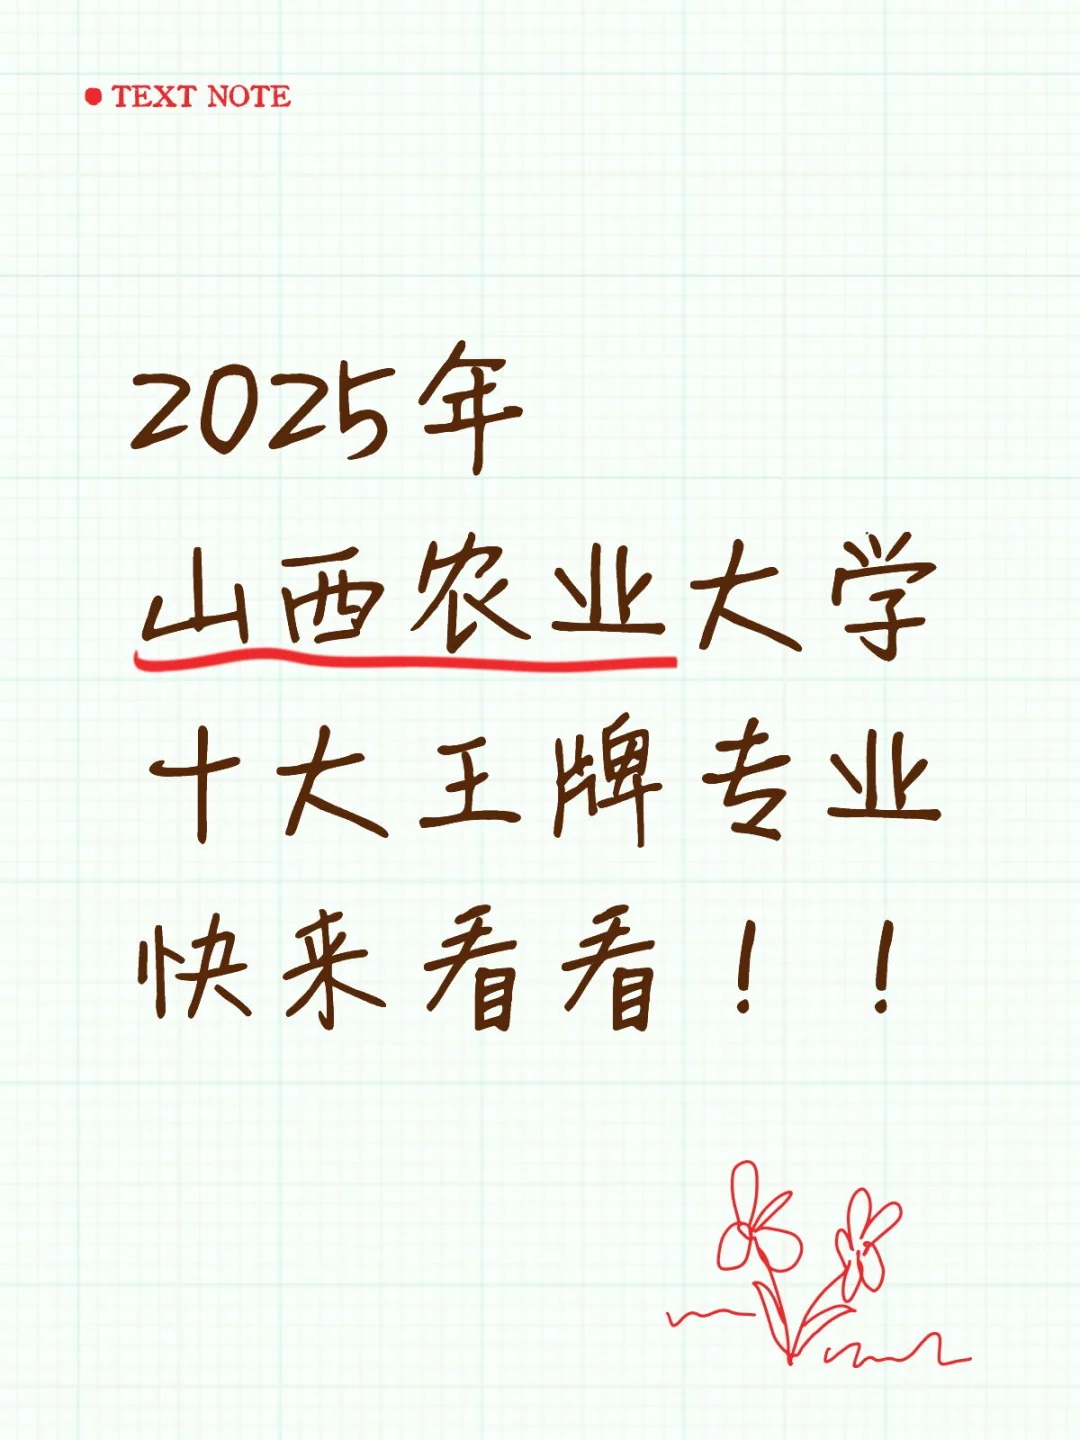 TEXT NOTE
2025年
山西农业大学
十大王牌专业
快来看看！！